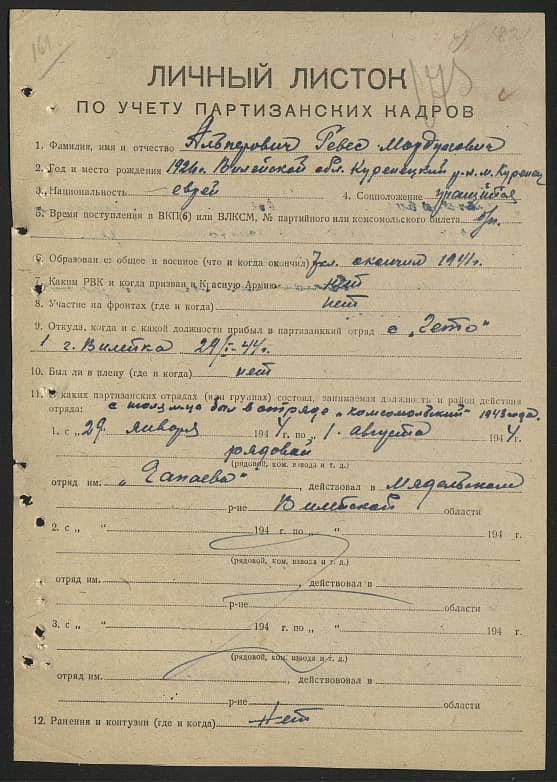 161
ЛИЧНЫЙ ЛИСТОК
ПО УЧЕТУ ПАРТИЗАНСКИХ КАДРОВ
1. Фамилия, имя и отчество Альперович Гевес Мордухович
2. Год и место рождения 1926г. Вилейской обл. Куренецкий р-н. м. Куренец
3. Национальность еврей 4. Соцположение учащийся
5. Время поступления в ВКП(б) или ВЛКСМ, № партийного или комсомольского билета б/п.
6. Образован е: общее и военное (что и когда окончил) 7 кл. окончил 1941г.
7. Каким РВК и когда призван в Красную Армию нет
8. Участие на фронтах (где и когда) нет
9. Откуда, когда и с какой должности прибыл в партизанский отряд с „Гето"
г. Вилейка 29/I-44г.
10. Был ли в плену (где и когда) нет
11. В каких партизанских отрядах (или группах) состоял, занимаемая должность и район действия
отряда: с был в отряде „комсомольский" 1943 года.
1. с „29 января 1944 г. по „1. августа 1944 г.
рядовой
(рядовой, ком. взвода и т. д.)
отряд им. „Чапаева" , действовал в Мядельском
р-не Вилейской области
2. с „ “ 194 г. по „ “ 194 г.
(рядовой, ком. взвода и т. д.)
отряд им. , действовал в
р-не области
3. с „ “ 194 г. по „ “ 194 г.
(рядовой, ком. взвода и т. д.)
отряд им. , действововал в
р-не области
12. Ранения и контузии (где и когда) нет